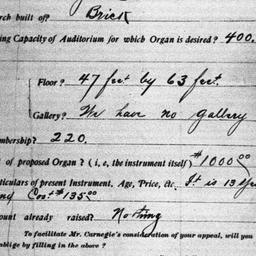 rch built of? Brick
ing Capacity of Auditorium for which Organ is desired? 400.
Floor? 47 feet by 63 feet.
Gallery? We have no gallery
mbership? 220.
of proposed Organ? (i, e, the instrument itself) $1000 00
ticulars of present Instrument, Age, Price, etc. It is 13 Ye
Cost $135.00
ount already raised? Nothing
To facilitate Mr. Carnegie's consideration of your appeal, will you
oblige by filling in the above?